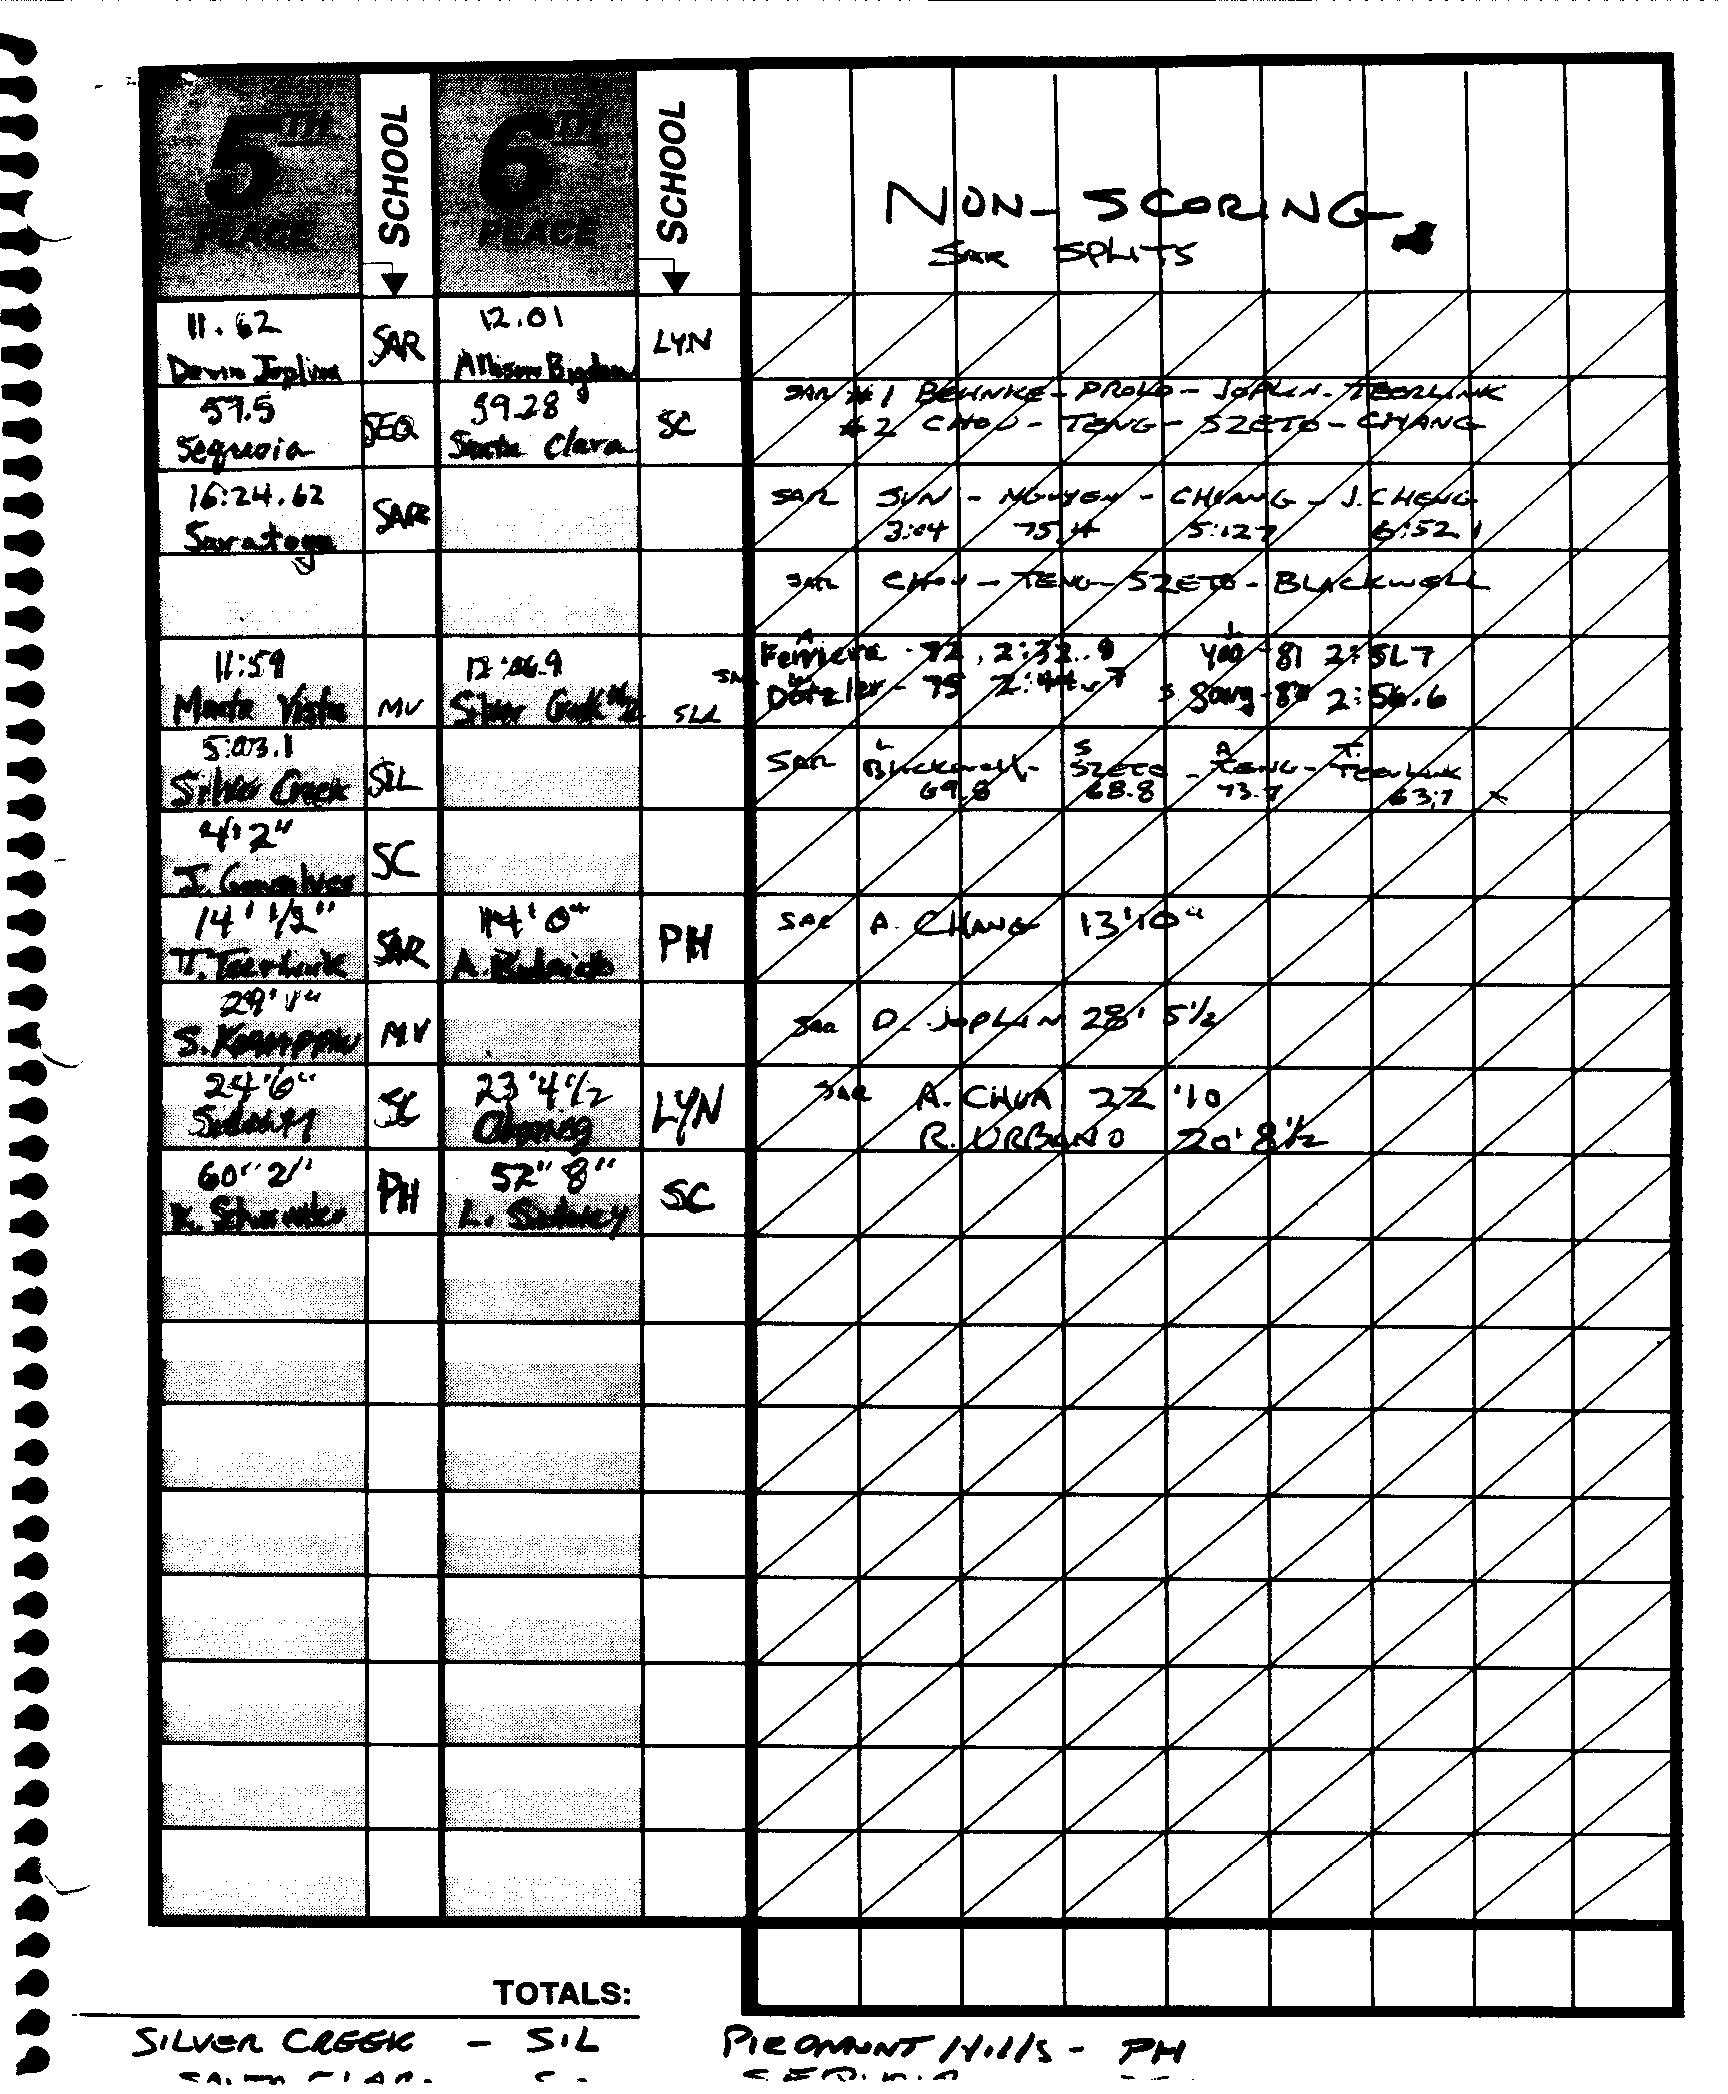 5TH PLACE SCHOOL 6TH PLACE SCHOOL
NON-SCORING
SAR SPLITS
11.62 12.01
SAR LYN
Joplin Allison
SAR #1 BEHNKE - PROLO - JOPLIN - TEERLINK
57.5 59.28
SEQ SC
#2 CHOU - TENG - SZETO - CHANG
Sequoia Santa Clara
16:24.62
SAR
SAR SUN - NGUYEN - CHIANG - J. CHENG
3:04 75.4 5:127 6:52.1
Saratoga
SAR CHOU - TENG - SZETO - BLACKWELL
11:59 12:06.9
A L
Ferriera - 72, 2:32.9 Yoo - 81 2:51.7
SAR Dotzler - 75 2:44.7 S Song 2:56.6
Monta Vista MV Silver Creek #2 SIL
5:03.1
SIL
L S A T.
SAR Blackwell - SZETO - TENG - TEERLINK
69.8 68.8 73.7 63.7
Silver Creek
4'2"
SC
J. Gonsalves
14' 1/2" 14'0"
SAR PH
SAR A. CHANG 13'10"
T. Teerlink A.
29'1"
MV
SAR D. JOPLIN 28' 5½
S.
24'6" 23'4½
SC LYN
SAR A. CHUA 22'10
R. URBANO 20'8½
60" 2" 52" 8"
PH SC
K. L. Sidney
TOTALS:
SILVER CREEK - SIL PIEDMONT Hills - PH